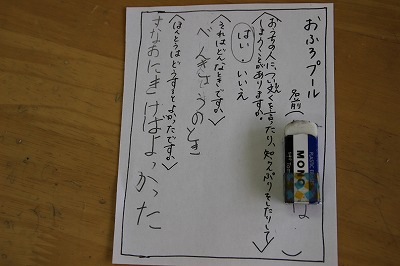 おふろプール
名前（
な）
〈おうちの人に、つい、文くを言ったり、知らんぷりをしたりして
しまうことがありますか。〉
はい・いいえ
〈それはどんなときですか。〉
べんきょうのとき
〈ほんとうはどうするとよかったですか。〉
すなおにきけばよかった
MONO